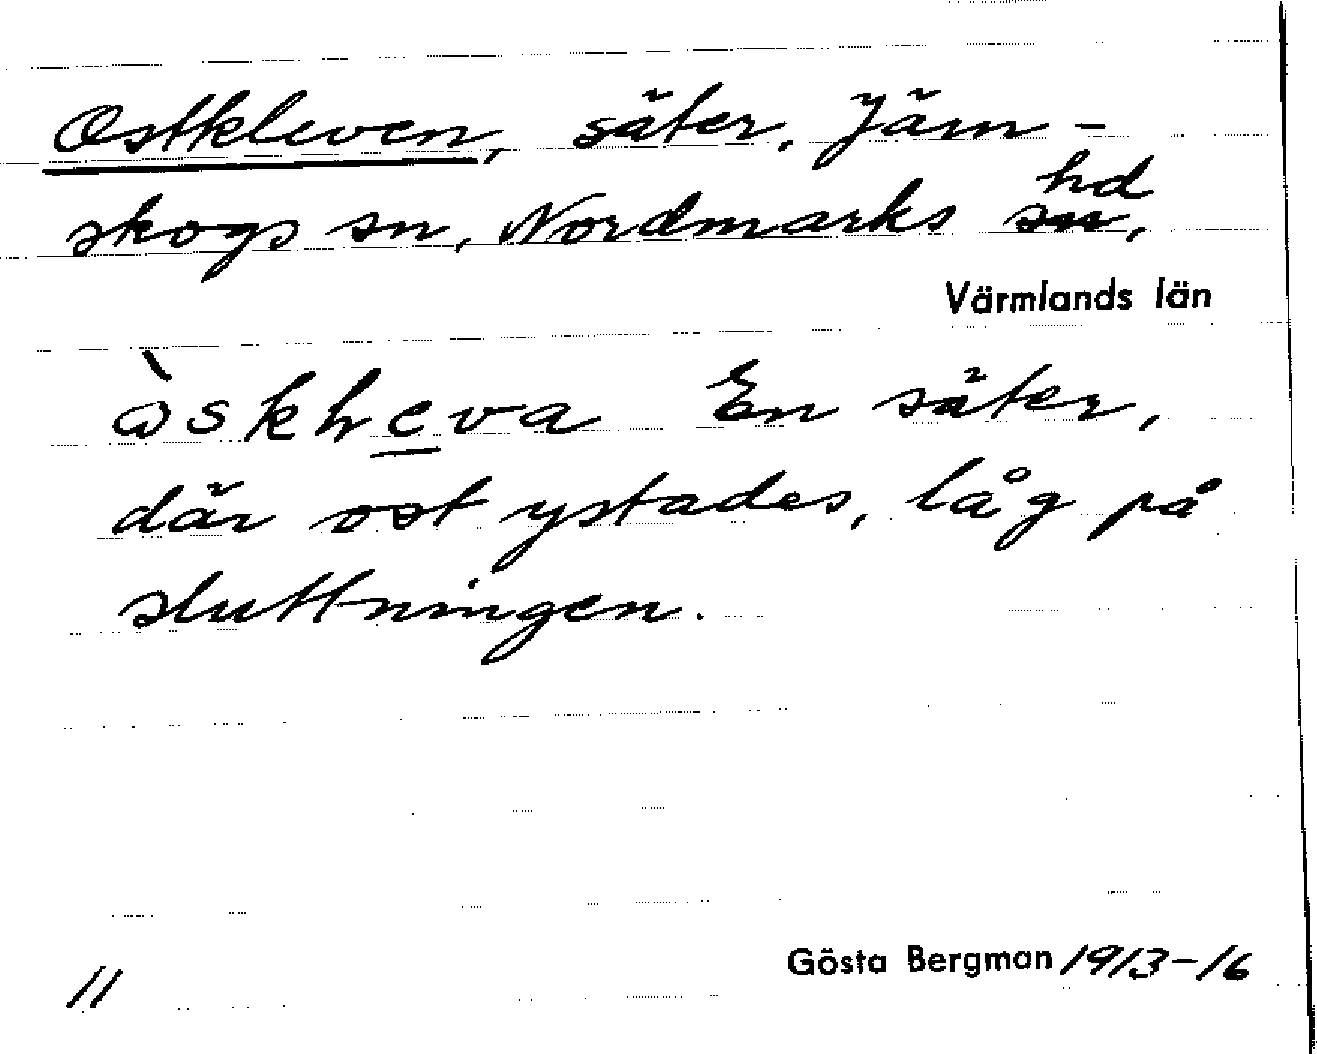 Ostkleven, säter, Järn-
skogs sn, Nordmarks hd,
Värmlands län
En säter,
där ost ystades, låg på
sluttningen.
Gösta Bergman 1913-16
11